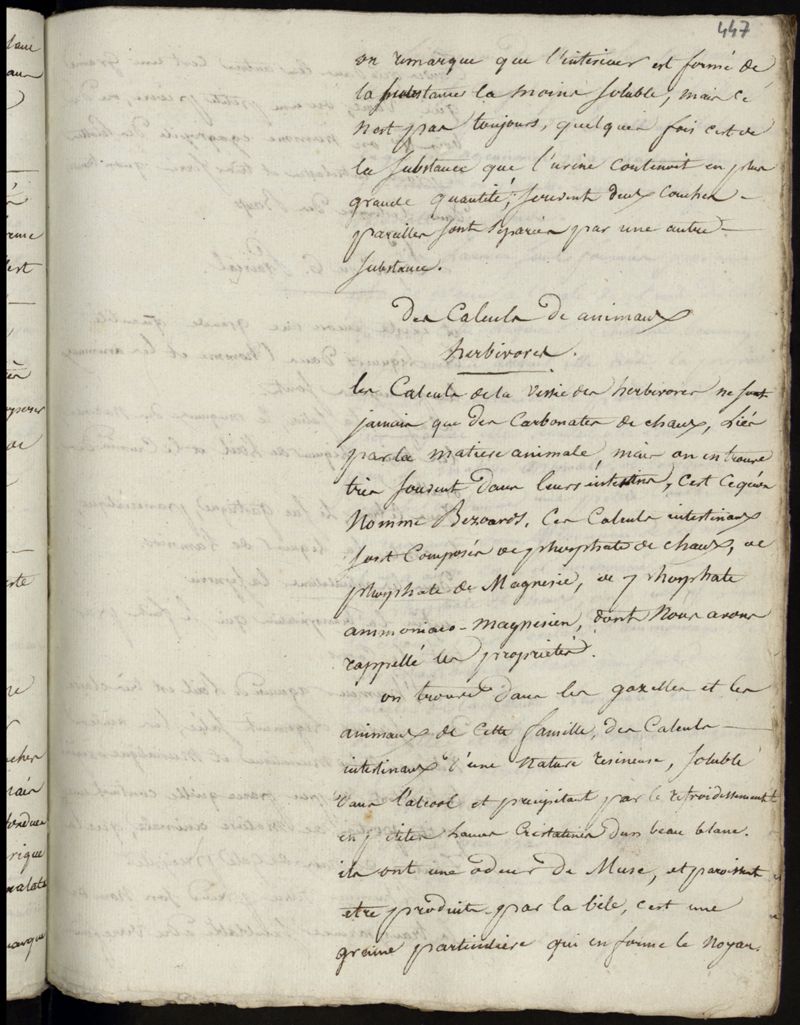 447
on remarque que l'interieur est formé de
la substance la moins soluble, mais ce
n'est pas toujours, quelques fois c'est de
la substance que l'urine contenoit en plus
grande quantité; souvent deux couches
pareilles sont séparées par une autre
substance.
Des Calculs de animaux
herbivores.
les Calculs de la vessie des herbivores ne sont
jamais que des Carbonates de chaux, liés
par la matiere animale, mais on en trouve
tres souvent dans leurs intestins, c'est ce qu'on
nomme Bezoards. Ces Calculs intestinaux
sont Composés de phosphate de chaux, de
phosphate de Magnesie, de phosphate
ammoniaco-magnesien, dont nous avons
rappellé les proprietés.
on trouve dans les gazelles et les
animaux de cette famille, des Calculs
intestinaux d'une nature resineuse, soluble
dans l'alcool et precipitant par le refroidissement
en petites lames Cristalines d'un beau blanc.
ils ont une odeur de Musc, et paroissent
etre produits par la bile, c'est une
graine particuliere qui en forme le noyau.